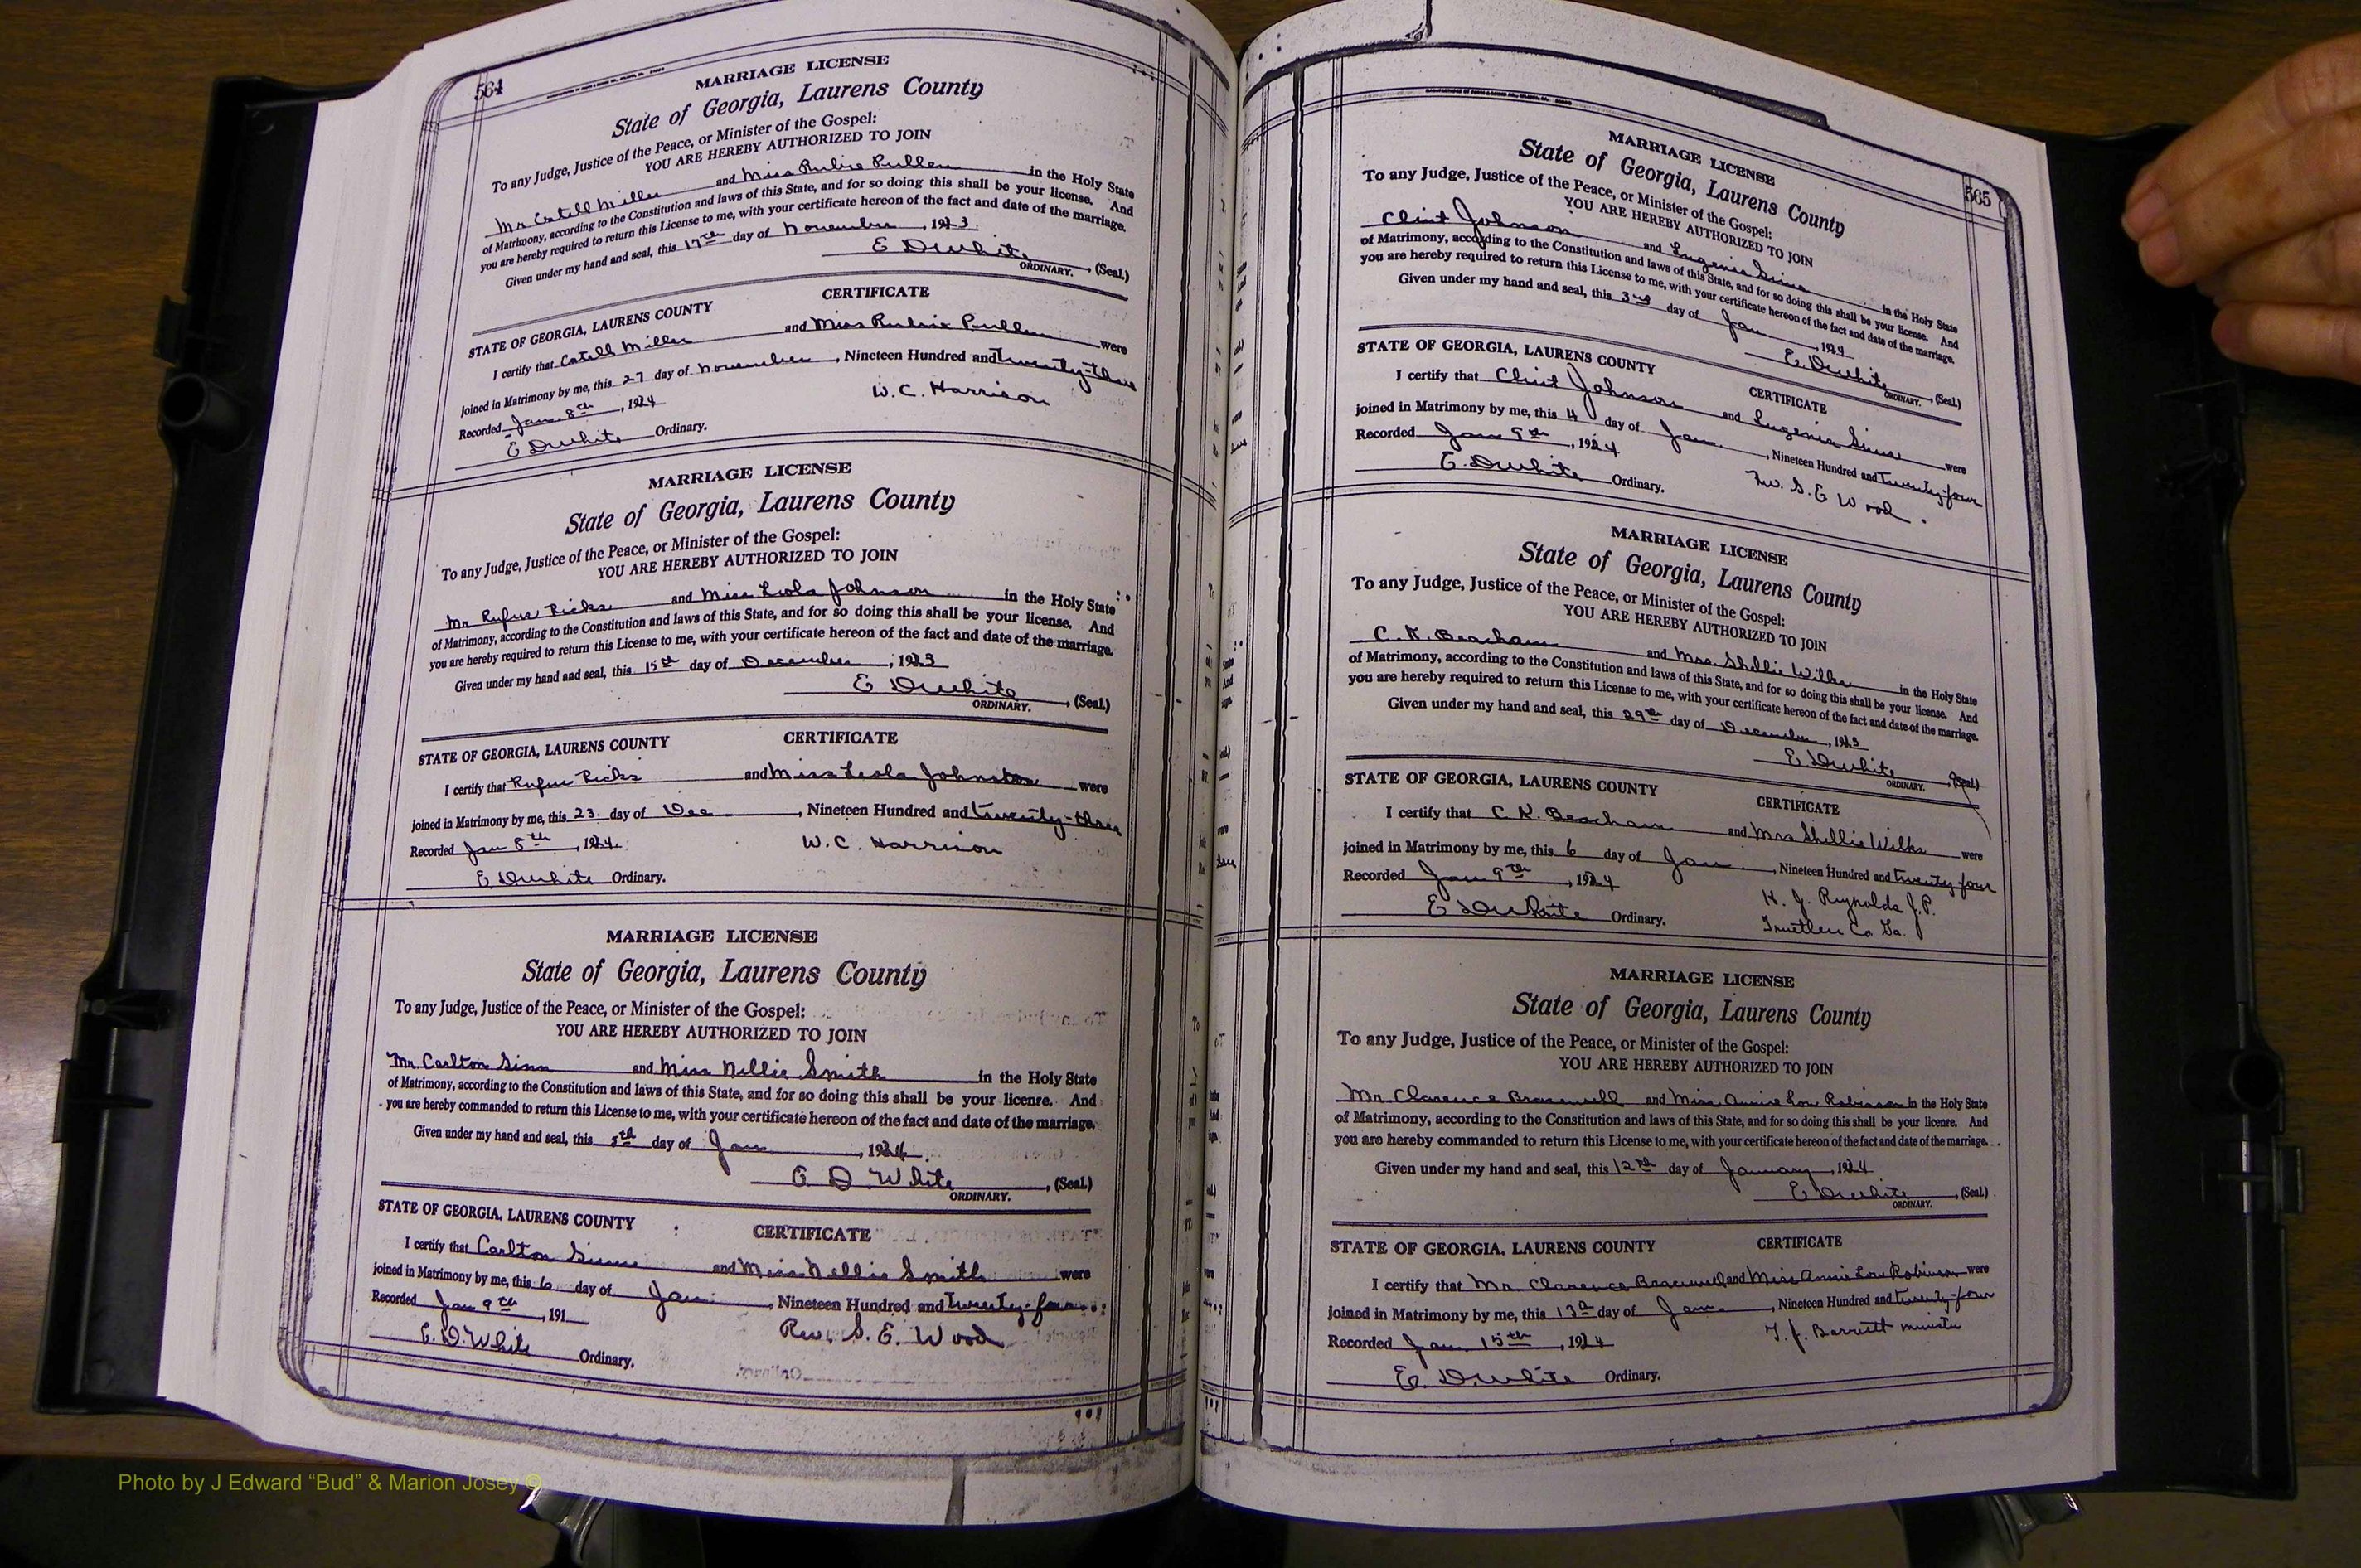 564
MARRIAGE LICENSE
State of Georgia, Laurens County
To any Judge, Justice of the Peace, or Minister of the Gospel:
YOU ARE HEREBY AUTHORIZED TO JOIN
Mr Estell Miller and Miss Rubie Pullen in the Holy State
of Matrimony, according to the Constitution and laws of this State, and for so doing this shall be your license. And
you are hereby required to return this License to me, with your certificate hereon of the fact and date of the marriage.
Given under my hand and seal, this 17th day of November, 1923
E D White (Seal.)
ORDINARY.
CERTIFICATE
STATE OF GEORGIA, LAURENS COUNTY
I certify that Estell Miller and Miss Rubie Pullen were
joined in Matrimony by me, this 27 day of November, Nineteen Hundred and twenty-three
Recorded Jan 8th, 1924 W. C. Harrison
E D White Ordinary.
MARRIAGE LICENSE
State of Georgia, Laurens County
To any Judge, Justice of the Peace, or Minister of the Gospel:
YOU ARE HEREBY AUTHORIZED TO JOIN
Mr Rufus Ricks and Miss Leola Johnson in the Holy State
of Matrimony, according to the Constitution and laws of this State, and for so doing this shall be your license. And
you are hereby required to return this License to me, with your certificate hereon of the fact and date of the marriage.
Given under my hand and seal, this 15th day of December, 1923
E D White (Seal.)
ORDINARY.
STATE OF GEORGIA, LAURENS COUNTY CERTIFICATE
I certify that Rufus Ricks and Miss Leola Johnston were
joined in Matrimony by me, this 23 day of Dec, Nineteen Hundred and twenty-three
Recorded Jan 8th, 1924 W. C. Harrison
E D White Ordinary.
MARRIAGE LICENSE
State of Georgia, Laurens County
To any Judge, Justice of the Peace, or Minister of the Gospel:
YOU ARE HEREBY AUTHORIZED TO JOIN
Mr Carlton Sinn and Miss Nellie Smith in the Holy State
of Matrimony, according to the Constitution and laws of this State, and for so doing this shall be your license. And
you are hereby commanded to return this License to me, with your certificate hereon of the fact and date of the marriage.
Given under my hand and seal, this 5th day of Jan, 1924
E D White, (Seal.)
ORDINARY.
STATE OF GEORGIA, LAURENS COUNTY CERTIFICATE
I certify that Carlton and Miss Nellie Smith were
joined in Matrimony by me, this 6 day of Jan, Nineteen Hundred and twenty-four
Recorded Jan 9th, 191 Rev. S. E. Wood
E. D. White Ordinary.
565
MARRIAGE LICENSE
State of Georgia, Laurens County
To any Judge, Justice of the Peace, or Minister of the Gospel:
YOU ARE HEREBY AUTHORIZED TO JOIN
Clint Johnson and Eugenia in the Holy State
of Matrimony, according to the Constitution and laws of this State, and for so doing this shall be your license. And
you are hereby required to return this License to me, with your certificate hereon of the fact and date of the marriage.
Given under my hand and seal, this 3rd day of Jan, 1924
E. D White, (Seal.)
ORDINARY.
STATE OF GEORGIA, LAURENS COUNTY CERTIFICATE
I certify that Clint Johnson and Eugenia were
joined in Matrimony by me, this 4 day of Jan., Nineteen Hundred and twenty-four
Recorded Jan 9th, 1924 S. E Wood.
E. D White Ordinary.
MARRIAGE LICENSE
State of Georgia, Laurens County
To any Judge, Justice of the Peace, or Minister of the Gospel:
YOU ARE HEREBY AUTHORIZED TO JOIN
C. K. Beacham and Mrs. Shellie Wilks in the Holy State
of Matrimony, according to the Constitution and laws of this State, and for so doing this shall be your license. And
you are hereby required to return this License to me, with your certificate hereon of the fact and date of the marriage.
Given under my hand and seal, this 29th day of December, 1923
E D White, (Seal.)
ORDINARY.
STATE OF GEORGIA, LAURENS COUNTY CERTIFICATE
I certify that C. K. Beacham and Mrs Shellie Wilks were
joined in Matrimony by me, this 6 day of Jan, Nineteen Hundred and twenty four
Recorded Jan 9th, 1924 K. J. Reynolds J.P.
E D White Ordinary. Truetlen Co. Ga.
MARRIAGE LICENSE
State of Georgia, Laurens County
To any Judge, Justice of the Peace, or Minister of the Gospel:
YOU ARE HEREBY AUTHORIZED TO JOIN
Mr Clarence Bracewell and Miss Annie Lou Robinson in the Holy State
of Matrimony, according to the Constitution and laws of this State, and for so doing this shall be your license. And
you are hereby commanded to return this License to me, with your certificate hereon of the fact and date of the marriage.
Given under my hand and seal, this 12th day of January, 1924
E D White, (Seal.)
ORDINARY.
STATE OF GEORGIA, LAURENS COUNTY CERTIFICATE
I certify that Mr Clarence Bracewell and Miss Annie Lou Robinson were
joined in Matrimony by me, this 13 day of Jan, Nineteen Hundred and twenty-four
Recorded Jan 15th, 1924 T. J. Barrett minister
E. D. White Ordinary.
Photo by J Edward “Bud” & Marion Josey ©